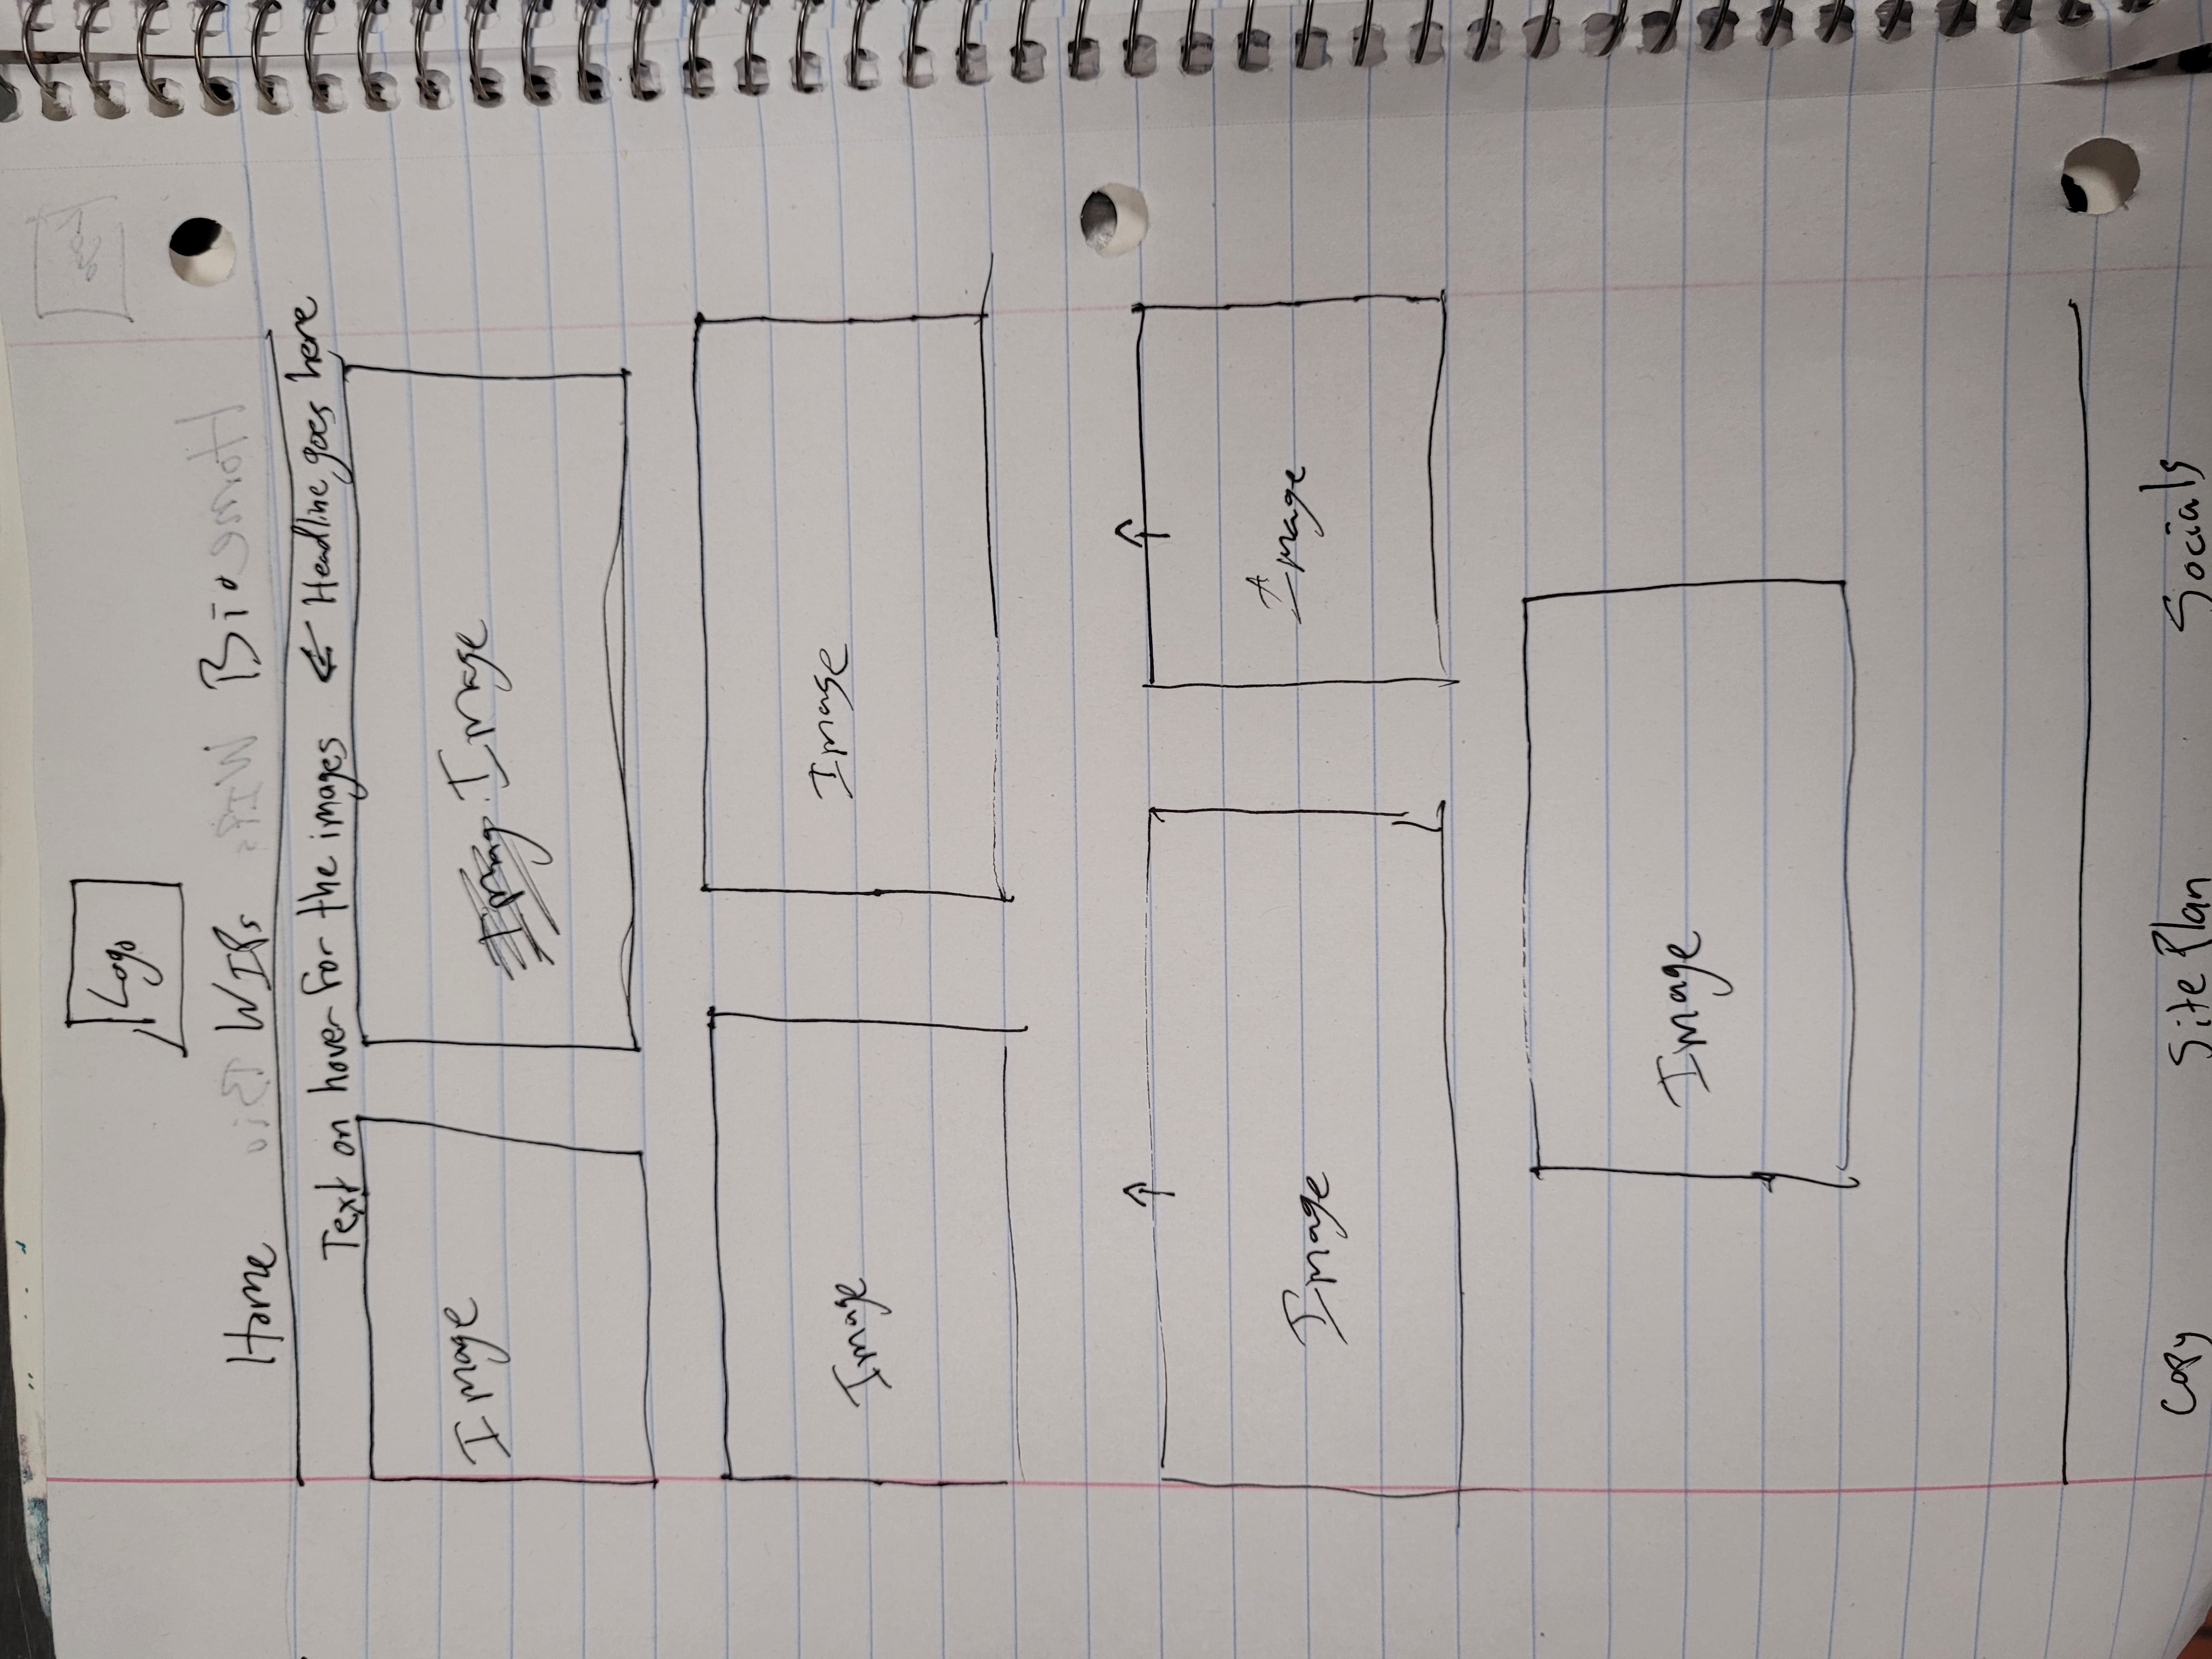 Logo
Home WIPs Bio
Text on hover for the images ← Headline goes here
Image
Image
Image
Image
Image
Image
Image
Copy Site Plan Socials